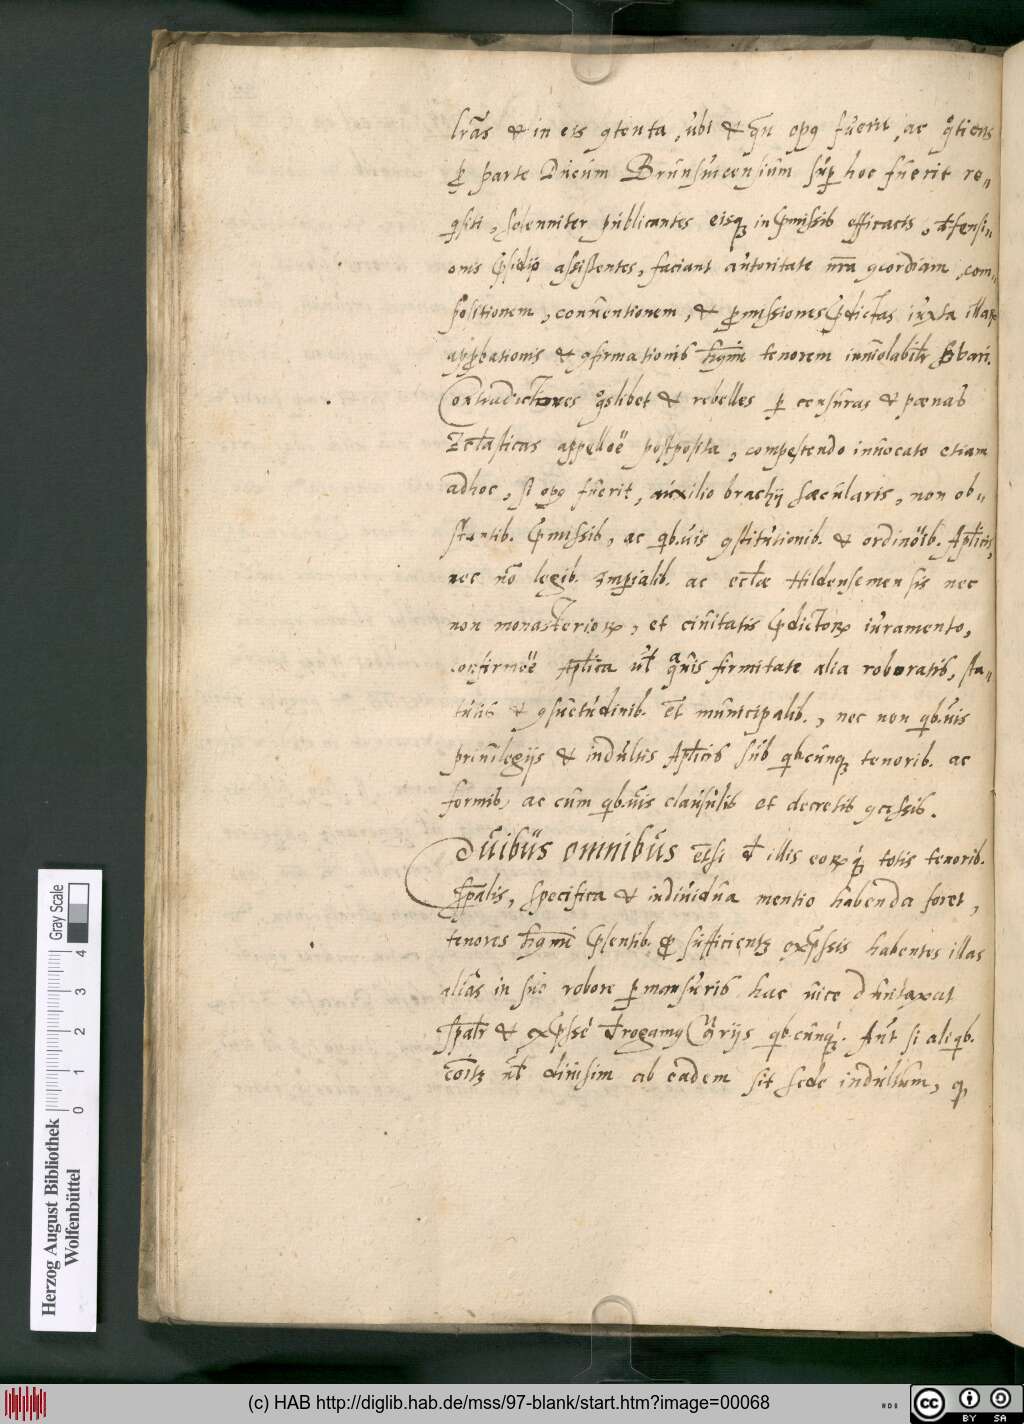 lrãs & in eis ꝯtenta, ubi & qñ opꝯ fuerit, ac qͦtiens
ꝑ parte Ducum Brunsuicensium suꝑ hoc fuerit re„
qͥsiti, solenniter publicantes eisqꝫ in pͤmissis efficacis, dͤfensi„
onis pͤsidio assistentes, faciant autoritate nr̃a ꝯcordiam, com„
positionem, conuentionem, & ꝓmissiones pͤdictas iuxta illaꝝ
approbationis & ꝯfirmationis hmõi tenorem inuiolabilr̃ obseruari.
Contradictores qͦslibet & rebelles ꝑ censuras & pœnas
Ecclãsticas appelloẽ postposita, compescendo inuocato etiam
adhoc, si opꝯ fuerit, auxilio brachij sæcularis, non ob„
stantib. pͤmissis, ac qb.uis ꝯstitutionib. & ordinoĩb. Aplicis,
nec nõ legib. Imperialib. ac eccl̃æ Hildensemensis nec
non monasterioꝝ, et ciuitatis pͤdictoꝝ iuramento,
confirmoẽ Aplica ul̃ qͣuis firmitate alia roboratis, sta„
tutis & ꝯsuetudinib. et municipalib., nec non qb.uis
priuilegijs & indultis Aplicis sub qb.cunqꝫ tenorib. ac
formis, ac cum qb.uis clausulis et decretis ꝯcessis.
Quibus omnibus etsi dͤ illis eoꝝqꝫ totis tenorib.
spãlis, specifica & indiuidua mentio habenda foret,
tenores hmõi pͤsentib. ꝓ sufficientꝫ expͤssis habentes illas
aliãs in suo robore ꝑmansuris hac uice duntaxat
spãlr & expͤsse dͤrogamꝯ Cõrijs qb.cunqꝫ. Aut si aliqb.
cõitꝫ ul̃ diuisim ab eadem sit sede indultum, qꝫ
Gray Scale
0 1 2 3 4
Herzog August Bibliothek
Wolfenbüttel
(c) HAB http://diglib.hab.de/mss/97-blank/start.htm?image=00068
cc BY SA